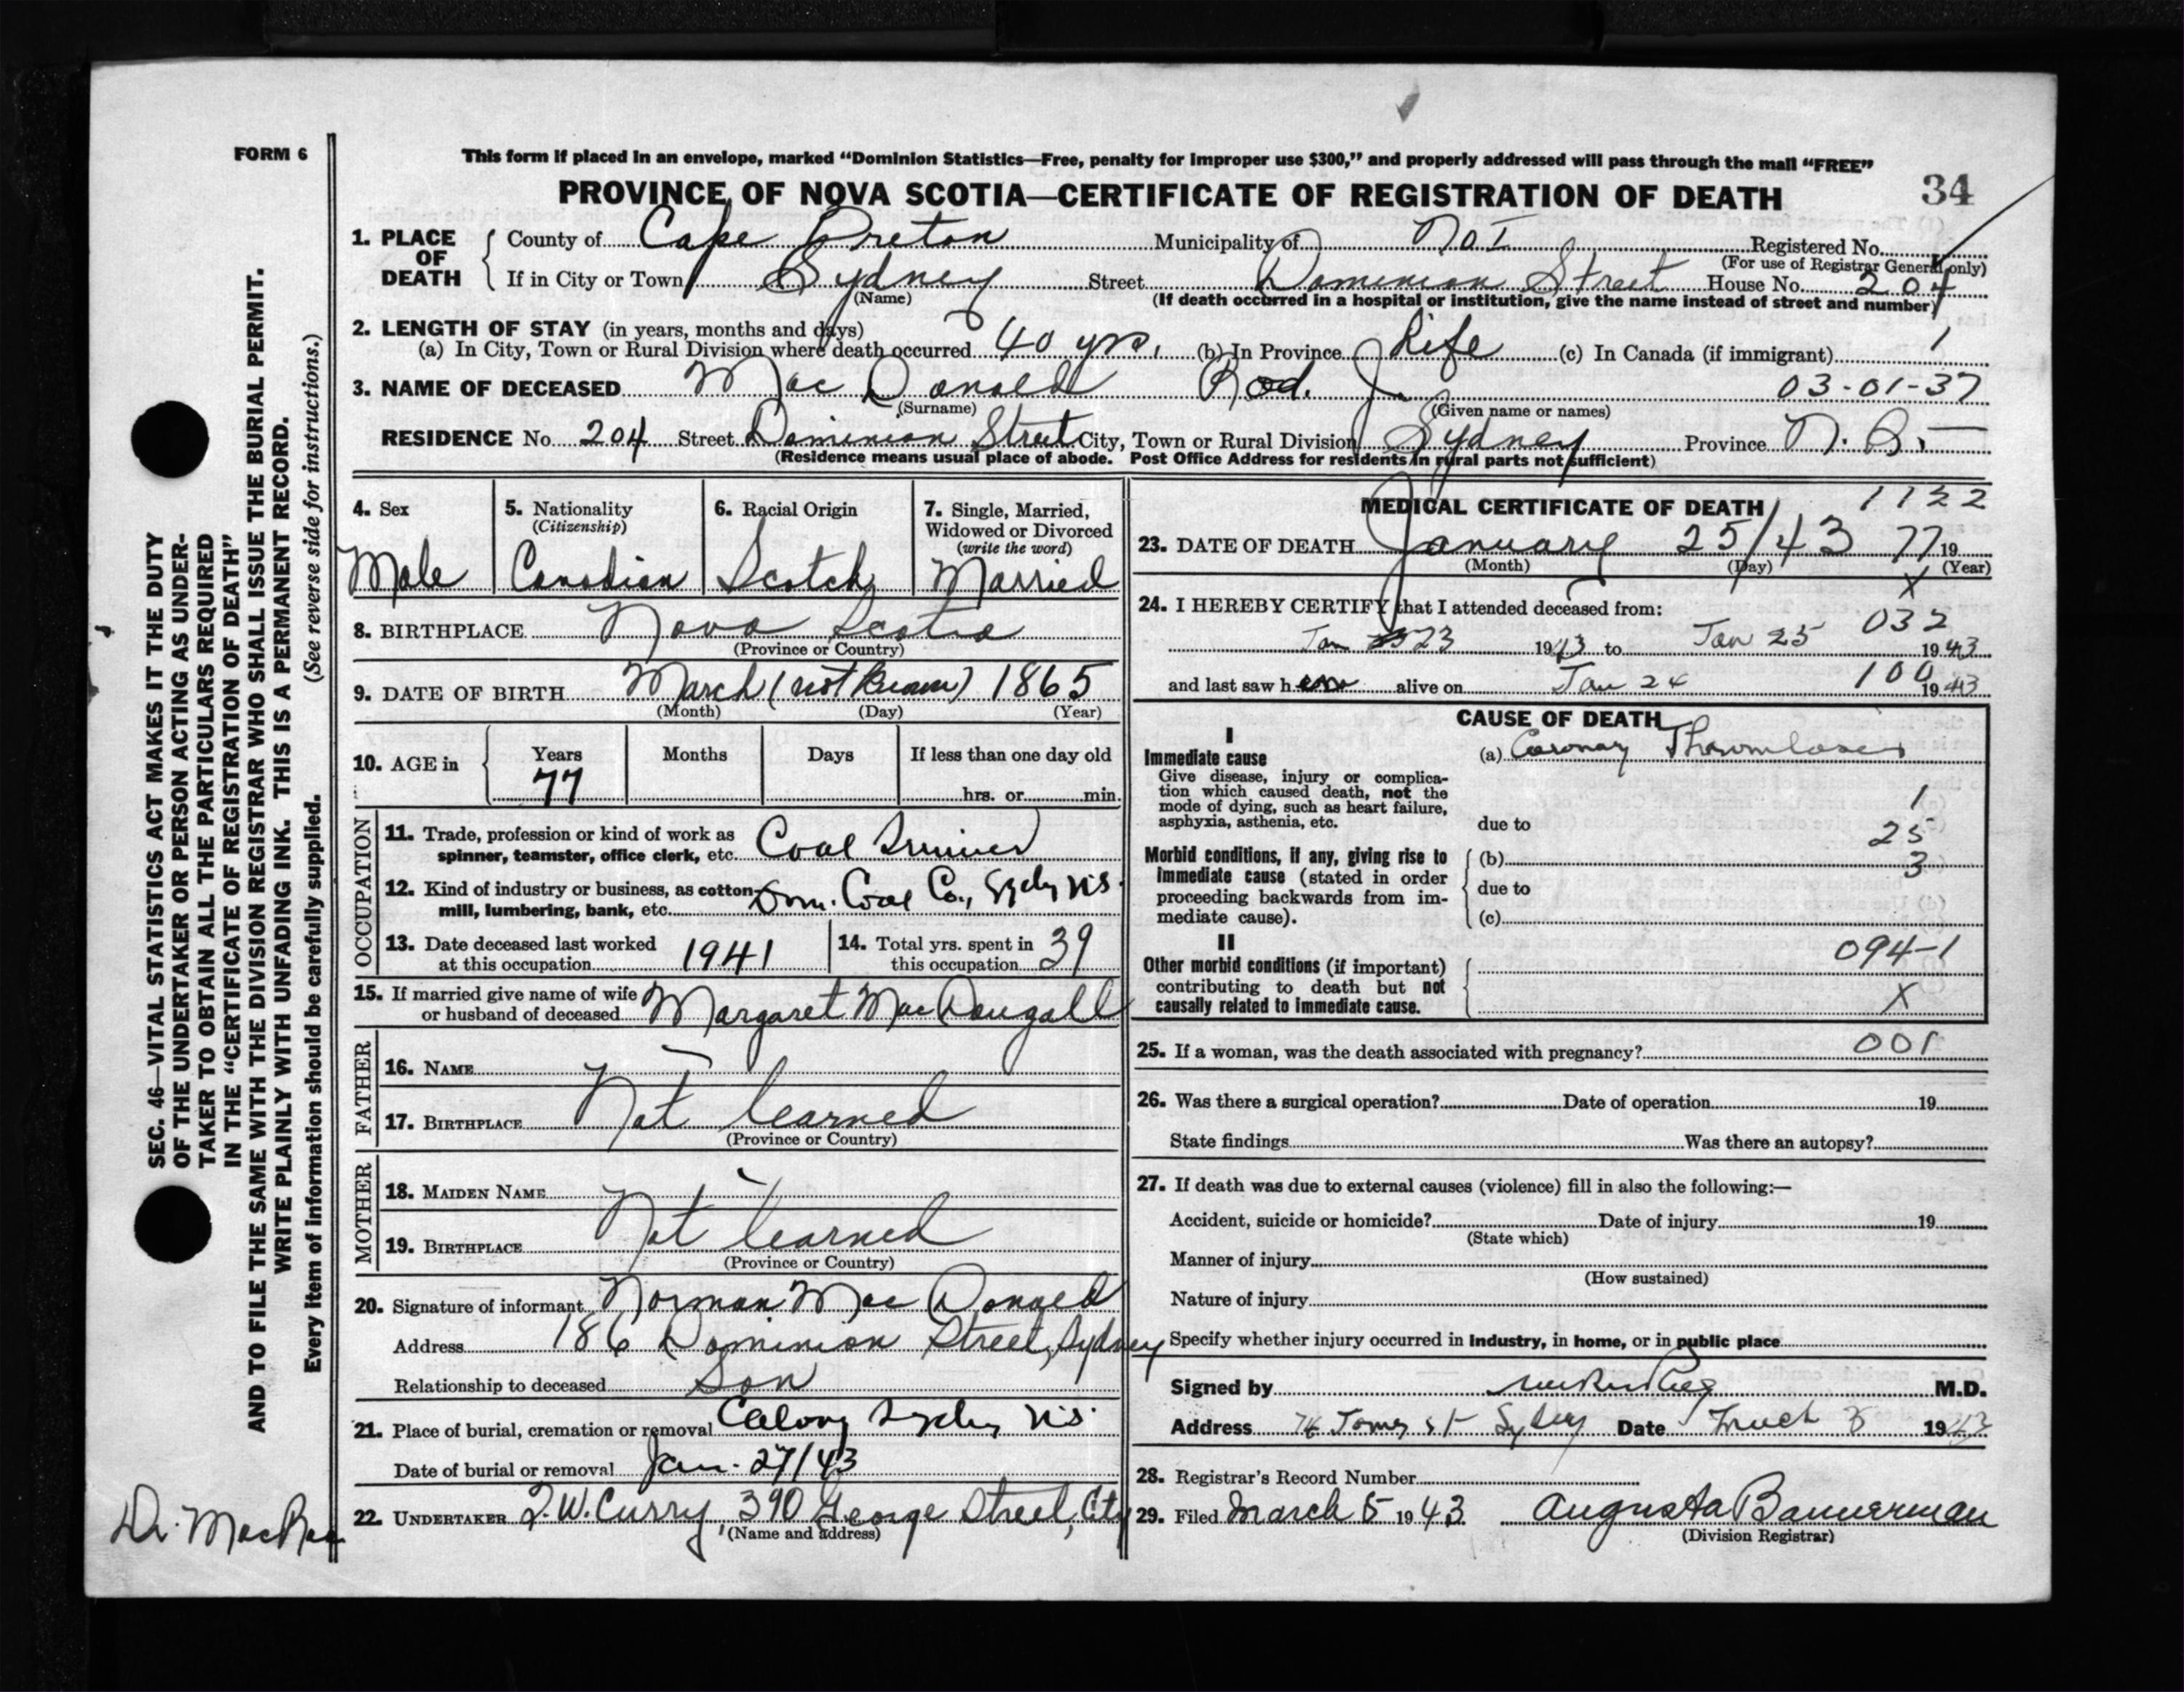 FORM 6
This form if placed in an envelope, marked “Dominion Statistics—Free, penalty for improper use $300,” and properly addressed will pass through the mail “FREE”
PROVINCE OF NOVA SCOTIA—CERTIFICATE OF REGISTRATION OF DEATH 34
1. PLACE OF DEATH County of Cape Breton Municipality of No I Registered No.
(For use of Registrar General only)
If in City or Town Sydney Street Dominion Street House No. 204
(Name) (If death occurred in a hospital or institution, give the name instead of street and number)
2. LENGTH OF STAY (in years, months and days)
(a) In City, Town or Rural Division where death occurred 40 yrs. (b) In Province Life (c) In Canada (if immigrant) 1
3. NAME OF DECEASED Mac Donald Rod. J. 03-01-37
(Surname) (Given name or names)
RESIDENCE No. 204 Street Dominion Street City, Town or Rural Division Sydney Province N. S.
(Residence means usual place of abode. Post Office Address for residents in rural parts not sufficient)
4. Sex Male
5. Nationality (Citizenship) Canadian
6. Racial Origin Scotch
7. Single, Married, Widowed or Divorced (write the word) Married
8. BIRTHPLACE Nova Scotia
(Province or Country)
9. DATE OF BIRTH March (not known) 1865
(Month) (Day) (Year)
10. AGE in Years 77 Months Days If less than one day old
hrs. or min.
OCCUPATION
11. Trade, profession or kind of work as
spinner, teamster, office clerk, etc. Coal
12. Kind of industry or business, as cotton-
mill, lumbering, bank, etc. Dom. Coal Co., Sydney N.S.
13. Date deceased last worked
at this occupation 1941
14. Total yrs. spent in
this occupation 39
15. If married give name of wife
or husband of deceased Margaret MacDougall
FATHER
16. NAME
17. BIRTHPLACE Not learned
(Province or Country)
MOTHER
18. MAIDEN NAME
19. BIRTHPLACE Not learned
(Province or Country)
20. Signature of informant Norman Mac Donald
Address 186 Dominion Street, Sydney
Relationship to deceased Son
21. Place of burial, cremation or removal Sydney N.S.
Date of burial or removal Jan. 27/43
22. UNDERTAKER W. Curry, 390 George Street, City
(Name and address)
MEDICAL CERTIFICATE OF DEATH 1122
23. DATE OF DEATH January 25/43 77 19
(Month) (Day) (Year)
X
24. I HEREBY CERTIFY that I attended deceased from:
032
Jan 23 1943 to Jan 25 1943
and last saw h alive on Jan 24 100 1943
CAUSE OF DEATH
I
Immediate cause (a) Coronary Thrombosis
Give disease, injury or complica-
tion which caused death, not the
mode of dying, such as heart failure,
asphyxia, asthenia, etc.
1
due to 25
Morbid conditions, if any, giving rise to
immediate cause (stated in order
proceeding backwards from im-
mediate cause).
(b) 3
due to
(c)
II
Other morbid conditions (if important)
contributing to death but not
causally related to immediate cause.
094-1
X
25. If a woman, was the death associated with pregnancy? 001
26. Was there a surgical operation? Date of operation 19
State findings Was there an autopsy?
27. If death was due to external causes (violence) fill in also the following:—
Accident, suicide or homicide? Date of injury 19
(State which)
Manner of injury
(How sustained)
Nature of injury
Specify whether injury occurred in industry, in home, or in public place
Signed by M.D.
Address St Sydney Date 1943
28. Registrar's Record Number
29. Filed March 5 1943 Augusta Bannerman
(Division Registrar)
SEC. 46—VITAL STATISTICS ACT MAKES IT THE DUTY
OF THE UNDERTAKER OR PERSON ACTING AS UNDER-
TAKER TO OBTAIN ALL THE PARTICULARS REQUIRED
IN THE “CERTIFICATE OF REGISTRATION OF DEATH”
AND TO FILE THE SAME WITH THE DIVISION REGISTRAR WHO SHALL ISSUE THE BURIAL PERMIT.
WRITE PLAINLY WITH UNFADING INK. THIS IS A PERMANENT RECORD.
Every item of information should be carefully supplied. (See reverse side for instructions.)
Dr. MacRae